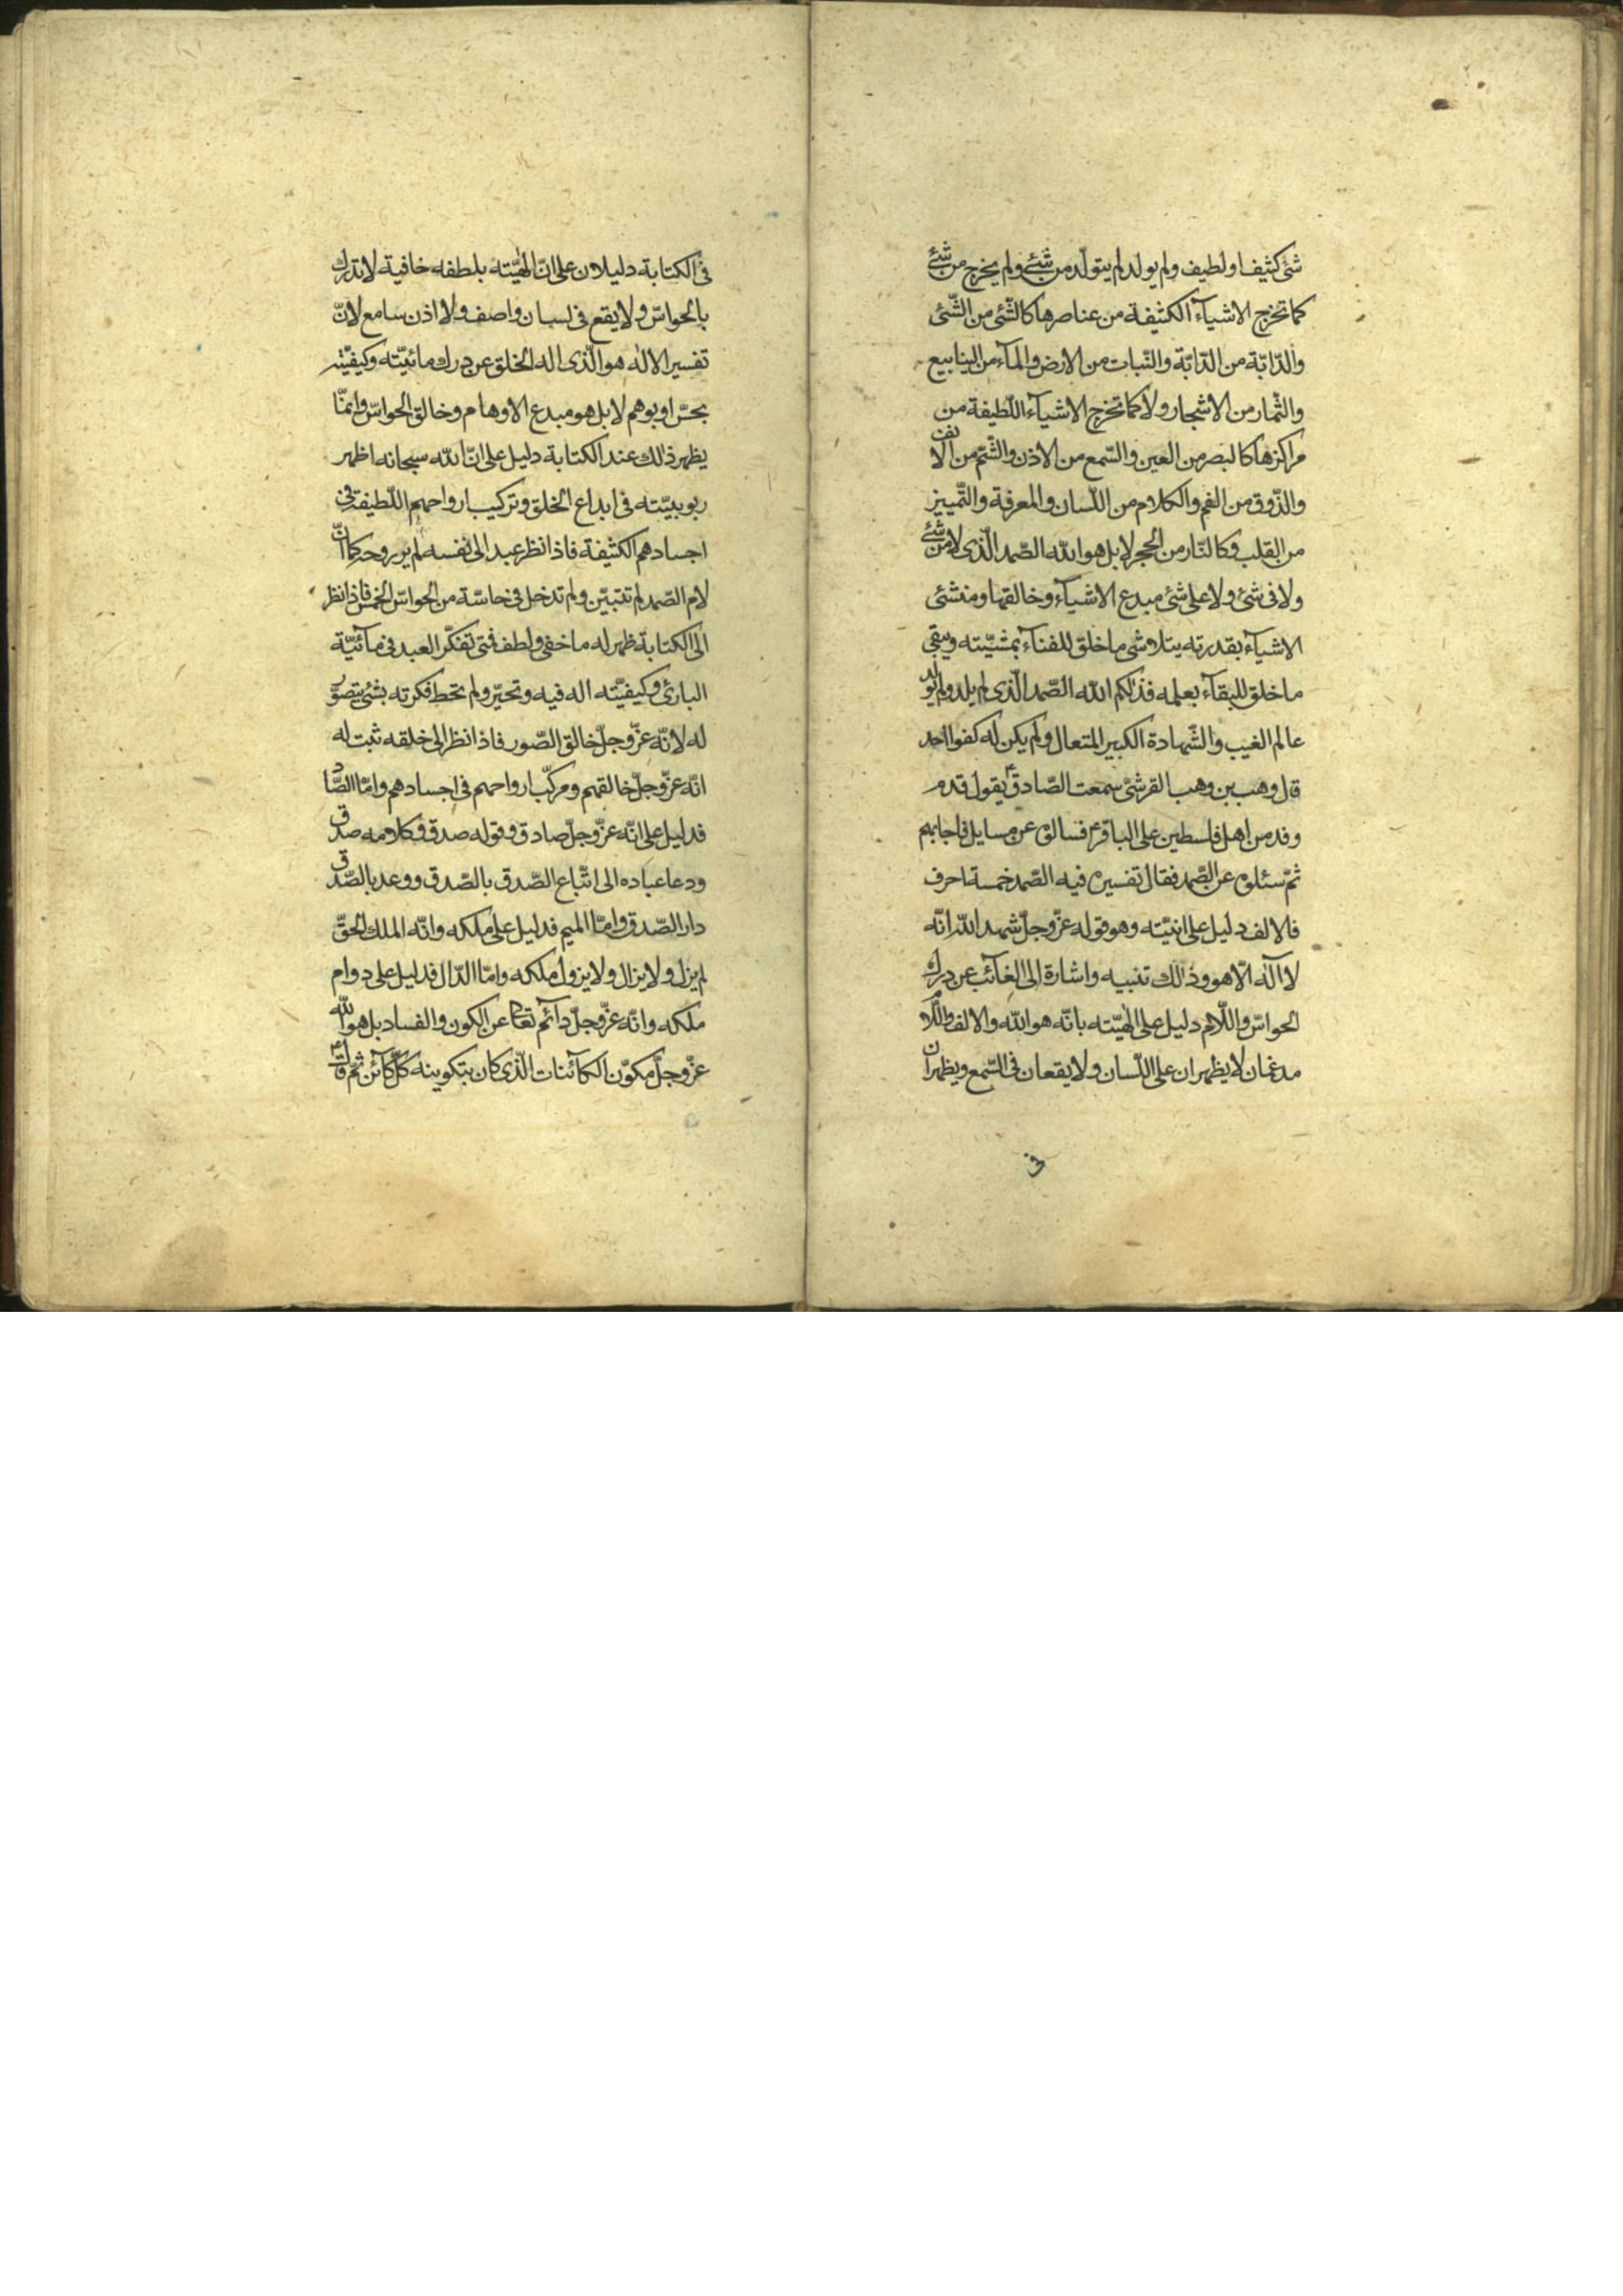 شئ كثيف او لطيف ولم يولد لم يتولّد من شئ ولم يخرج من شئ
كما تخرج الاشيآء الكثيفة من عناصرها كالشّئ من الشّئ
والدّابّة من الدّابّة والنّبات من الارض والمآء من الينابيع
والثّمار من الاشجار ولا كما تخرج الاشيآء اللّطيفة من
مراكزها كالبصر من العين والسّمع من الاذن والشّمّ من الانف
والذّوق من الفم والكلام من اللّسان والمعرفة والتّمييز
من القلب وكالنّار من الحجر لا بل هو الله الصّمد الّذى لا من شئ
ولا فى شئ ولا على شئ مبدع الاشيآء وخالقها ومنشئ
الاشيآء بقدرته يتلاوشى ما خلق للفنآء بمشيّته ويبقى
ما خلق للبقآء بعلمه فذلكم الله الصّمد الّذى لم يلد ولم يولد
عالم الغيب والشّهادة الكبير المتعال ولم يكن له كفوا احد
قال وهب بن وهب القرشىّ سمعت الصّادق ع يقول قدم
وفد من اهل فلسطين على الباقر ع فسالوه عن مسايل فاجابهم
ثمّ سئلوه عن الصّمد فقال تفسيره فيه الصّمد خمسة احرف
فالالف دليل على انيّته وهو قوله عزّ وجلّ شهد الله انّه
لا اله الّا هو وذلك تنبيه واشارة الى الغآئب عن درك
الحواسّ واللّام دليل على الهيّته بانّه هو الله والالف واللّام
مدغمان لا يظهران على اللّسان ولا يقعان فى السّمع ويظهران
فى
فى الكتابة دليلان على انّ الهيّته بلطفه خافية لا تدرك
بالحواسّ ولا يقع فى لسان واصف ولا اذن سامع لانّ
تفسير الاله هو الّذى اله الخلق عن درك مائيّته وكيفيّته
بحسّ او بوهم لا بل هو مبدع الاوهام وخالق الحواسّ وانّما
يظهر ذلك عند الكتابة دليل على انّ الله سبحانه اظهر
ربوبيّته فى ابداع الخلق وتركيب ارواحهم اللّطيفة فى
اجسادهم الكثيفة فاذا نظر عبد الى نفسه لم ير روحه كما انّ
لام الصّمد لم تتبيّن ولم تدخل فى حاسّة من الحواسّ الخمس فاذا نظر
الى الكتابة ظهر له ما خفى ولطف فمتى تفكّر العبد فى مآئيّة
البارئ وكيفيّته اله فيه وتحيّر ولم تحط فكرته بشئ يتصوّر
له لانّه عزّ وجلّ خالق الصّور فاذا نظر الى خلقه ثبت له
انّه عزّ وجلّ خالقهم ومركّب ارواحهم فى اجسادهم وامّا الصّاد
فدليل على انّه عزّ وجلّ صادق وقوله صدق وكلامه صدق
ودعا عباده الى اتّباع الصّدق بالصّدق ووعد بالصّدق
دار الصّدق وامّا الميم فدليل على ملكه وانّه الملك الحقّ
لم يزل ولا يزال ولا يزول ملكه وامّا الدّال فدليل على دوام
ملكه وانّه عزّ وجلّ دآئم تعالى عن الكون والفساد بل هو الله
عزّ وجلّ مكوّن الكآئنات الّذى كان بتكوينه كلّ كآئن ثمّ قال ع